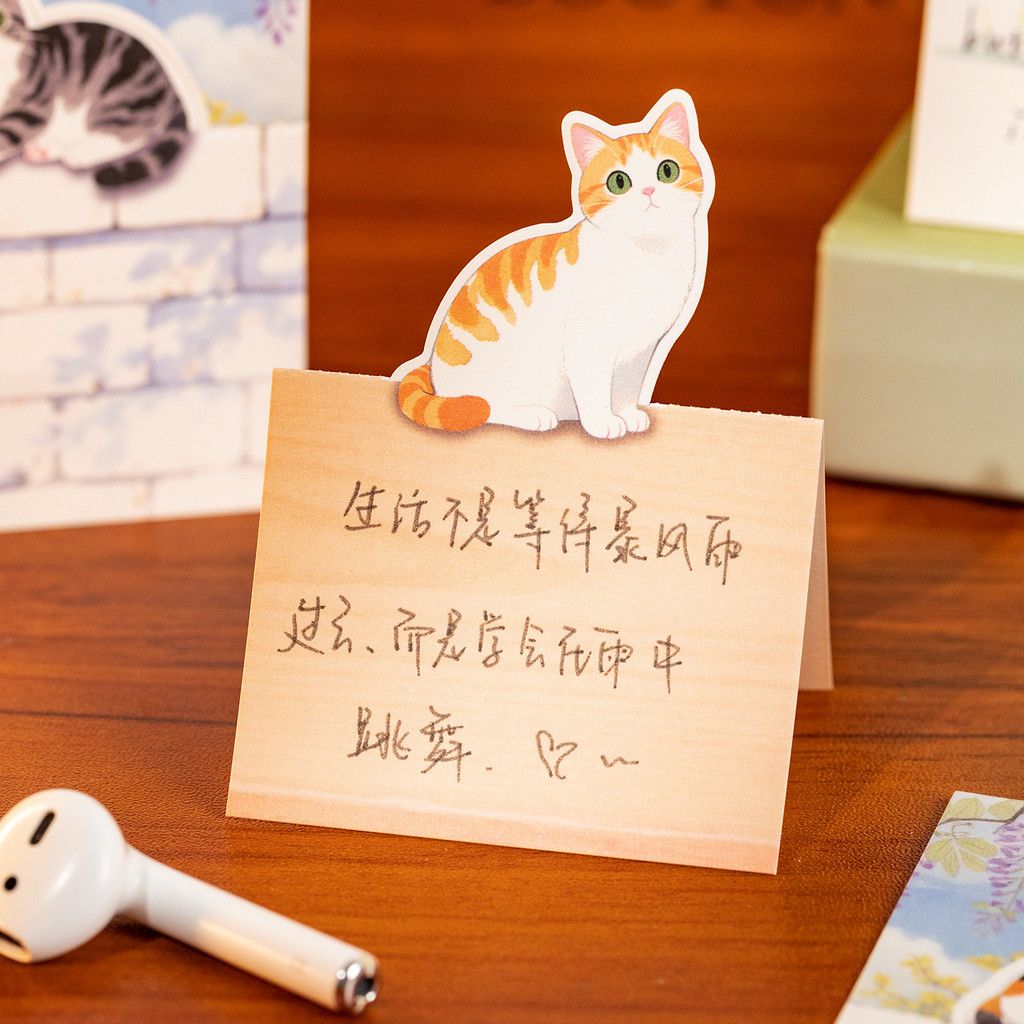 生活不是等待暴风雨
过去、而是学会在雨中
跳舞. ♡~